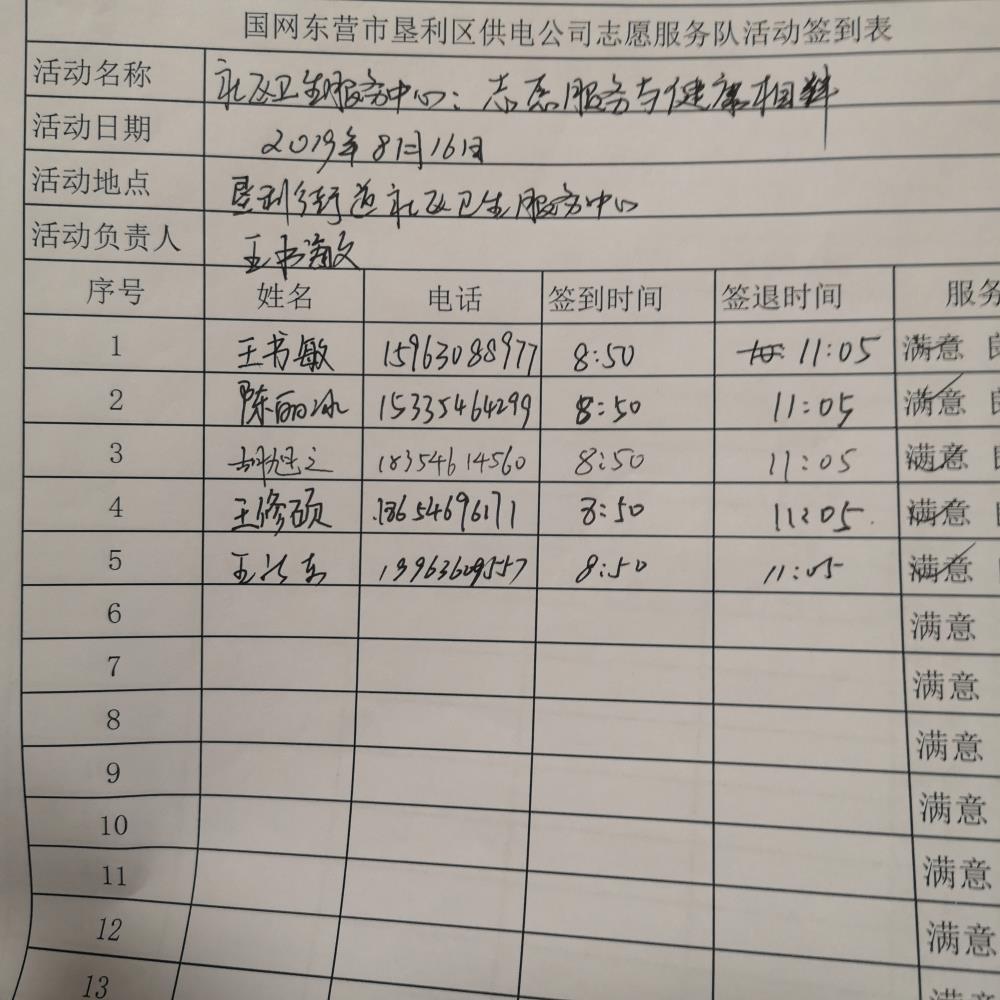 国网东营市垦利区供电公司志愿服务队活动签到表
活动名称 社区卫生服务中心：志愿服务与健康相伴
活动日期 2019年8月16日
活动地点 垦利街道社区卫生服务中心
活动负责人 王书敏
序号 姓名 电话 签到时间 签退时间 服务
1 王书敏 15963088977 8:50 11:05 满意
2 陈丽冰 15335464299 8:50 11:05 满意
3 胡旭之 18354614560 8:50 11:05 满意
4 王修硕 18654696171 8:50 11:05 满意
5 王 13963609557 8:50 11:05 满意
6 满意
7 满意
8 满意
9 满意
10 满意
11 满意
12 满意
13